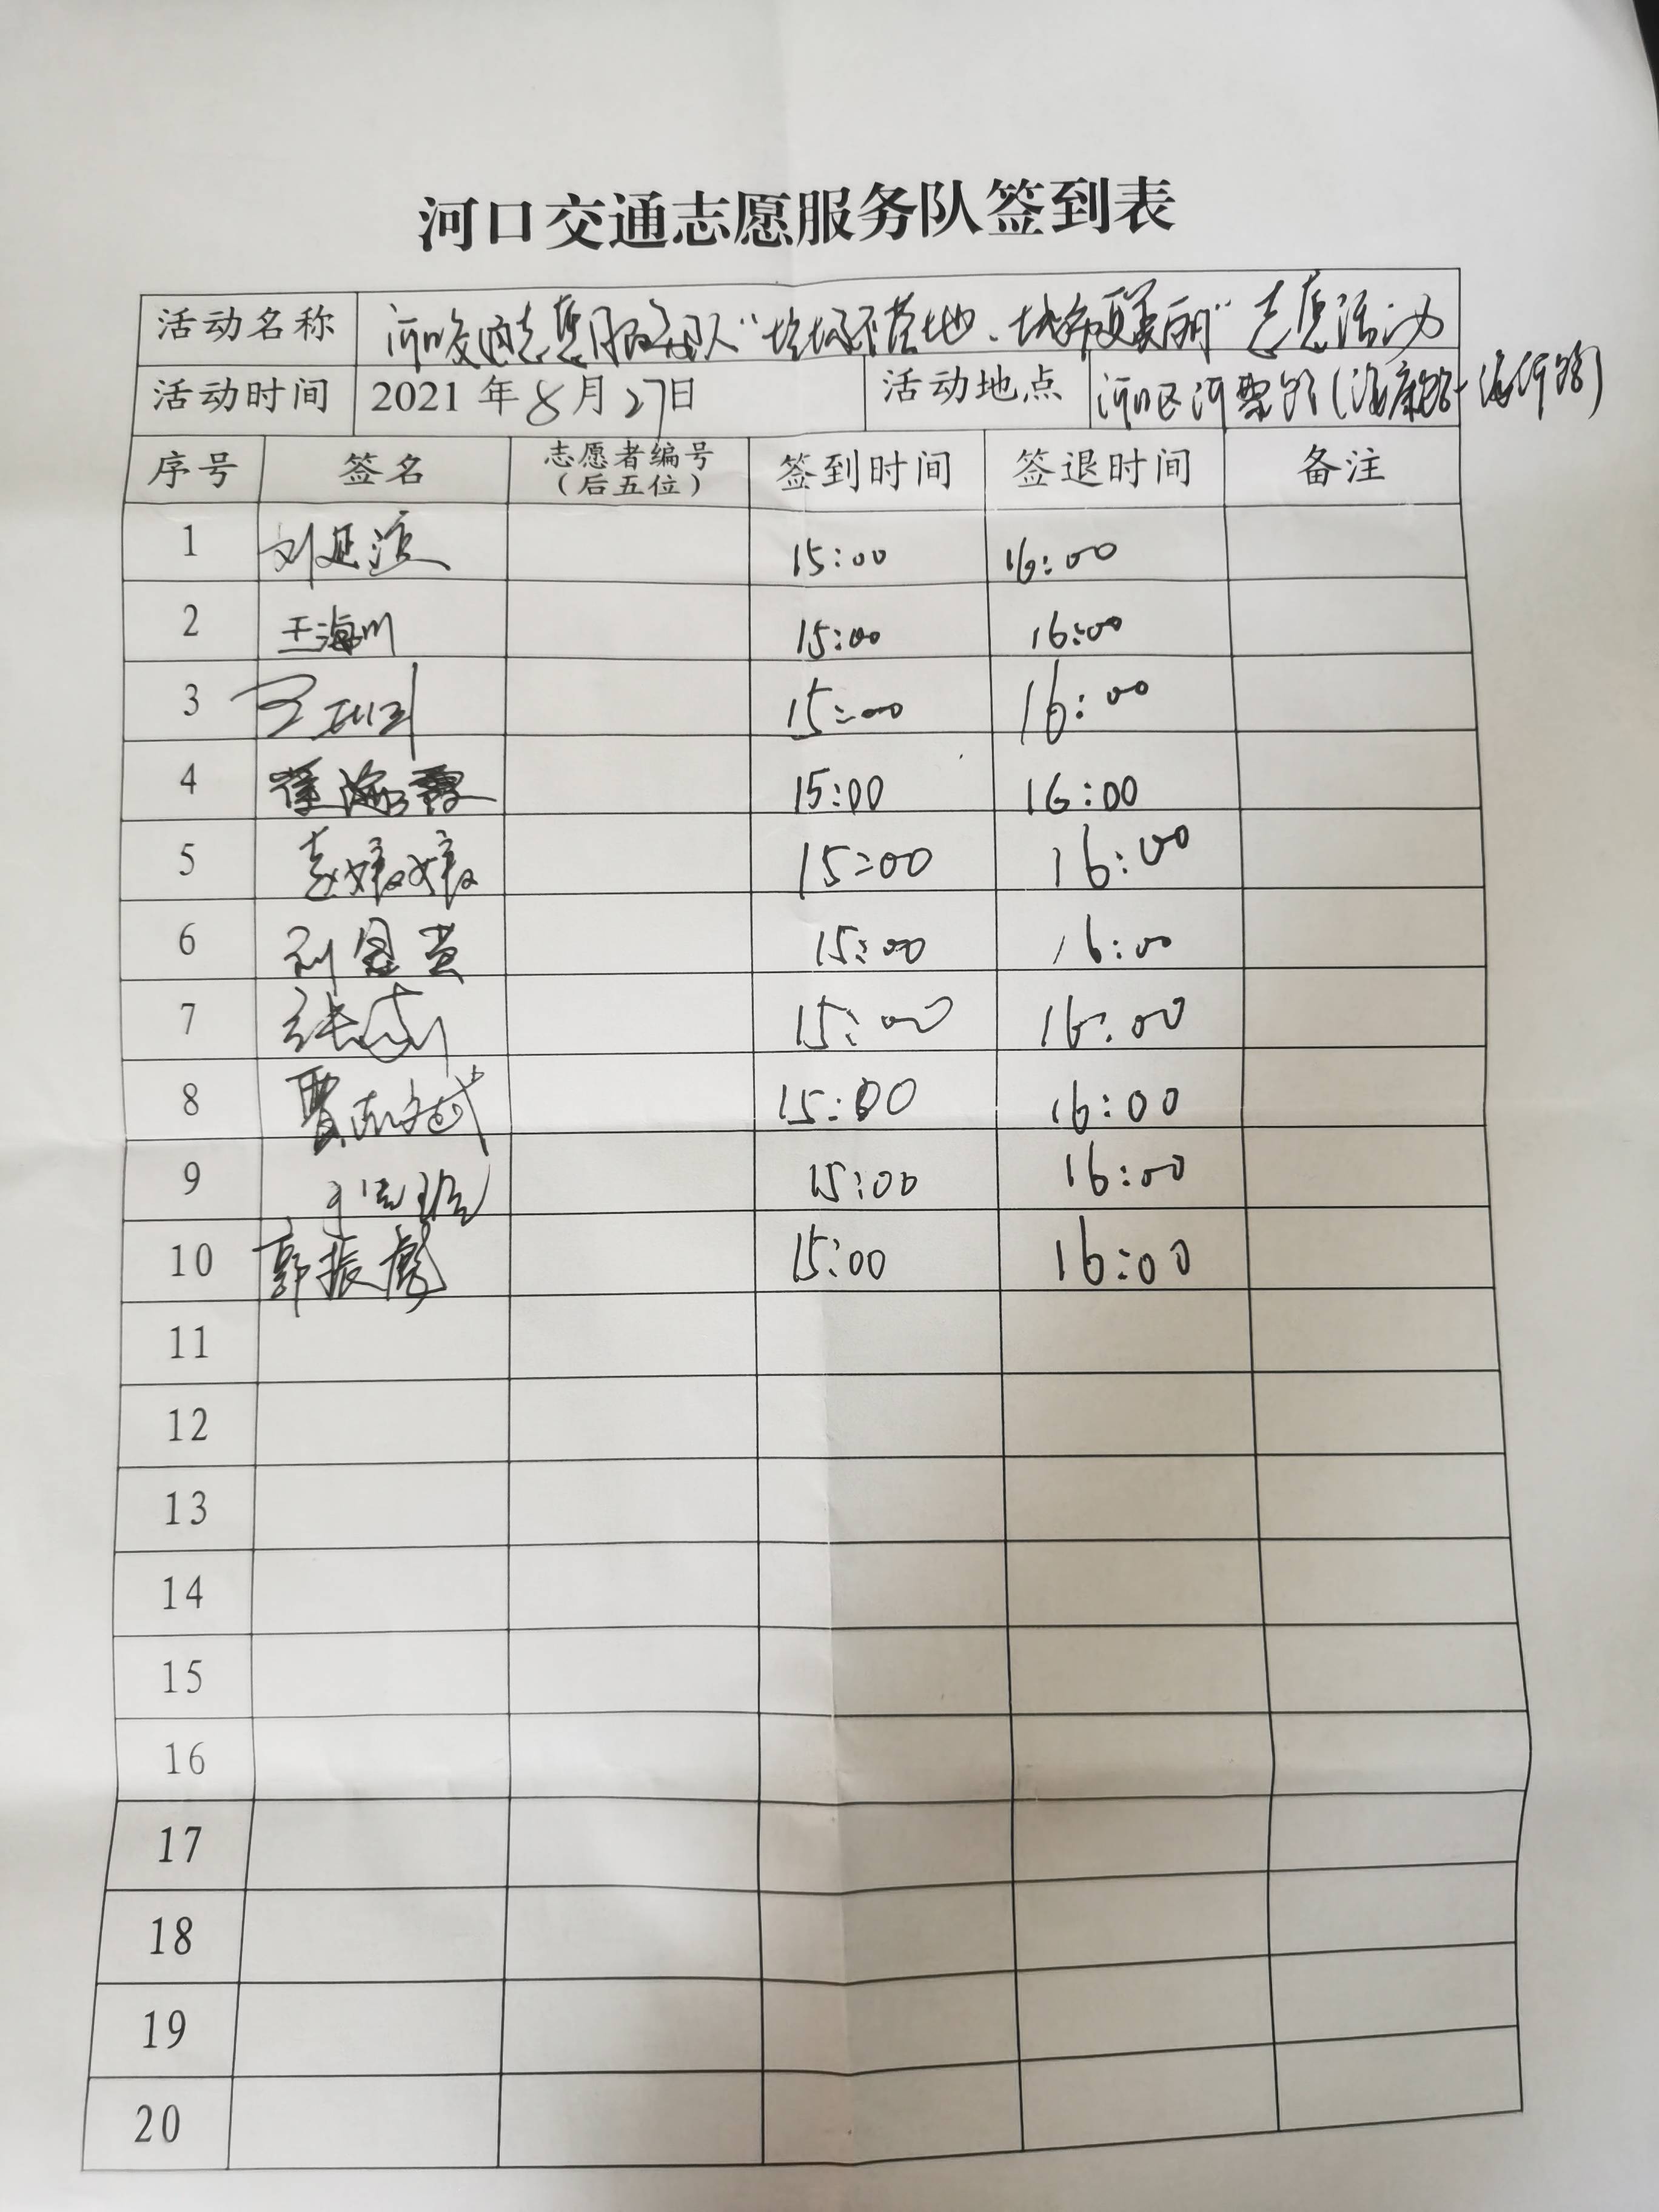 河口交通志愿服务队签到表
活动名称 河口交通志愿服务队“垃圾不落地、城市更美丽”志愿活动
活动时间 2021年8月27日 活动地点 河口区河聚路(海康路-海河路)
序号 签名 志愿者编号(后五位) 签到时间 签退时间 备注
1 15:00 16:00
2 王海川 15:00 16:00
3 15:00 16:00
4 15:00 16:00
5 15:00 16:00
6 15:00 16:00
7 15:00 16:00
8 15:00 16:00
9 15:00 16:00
10 郭振彪 15:00 16:00
11
12
13
14
15
16
17
18
19
20